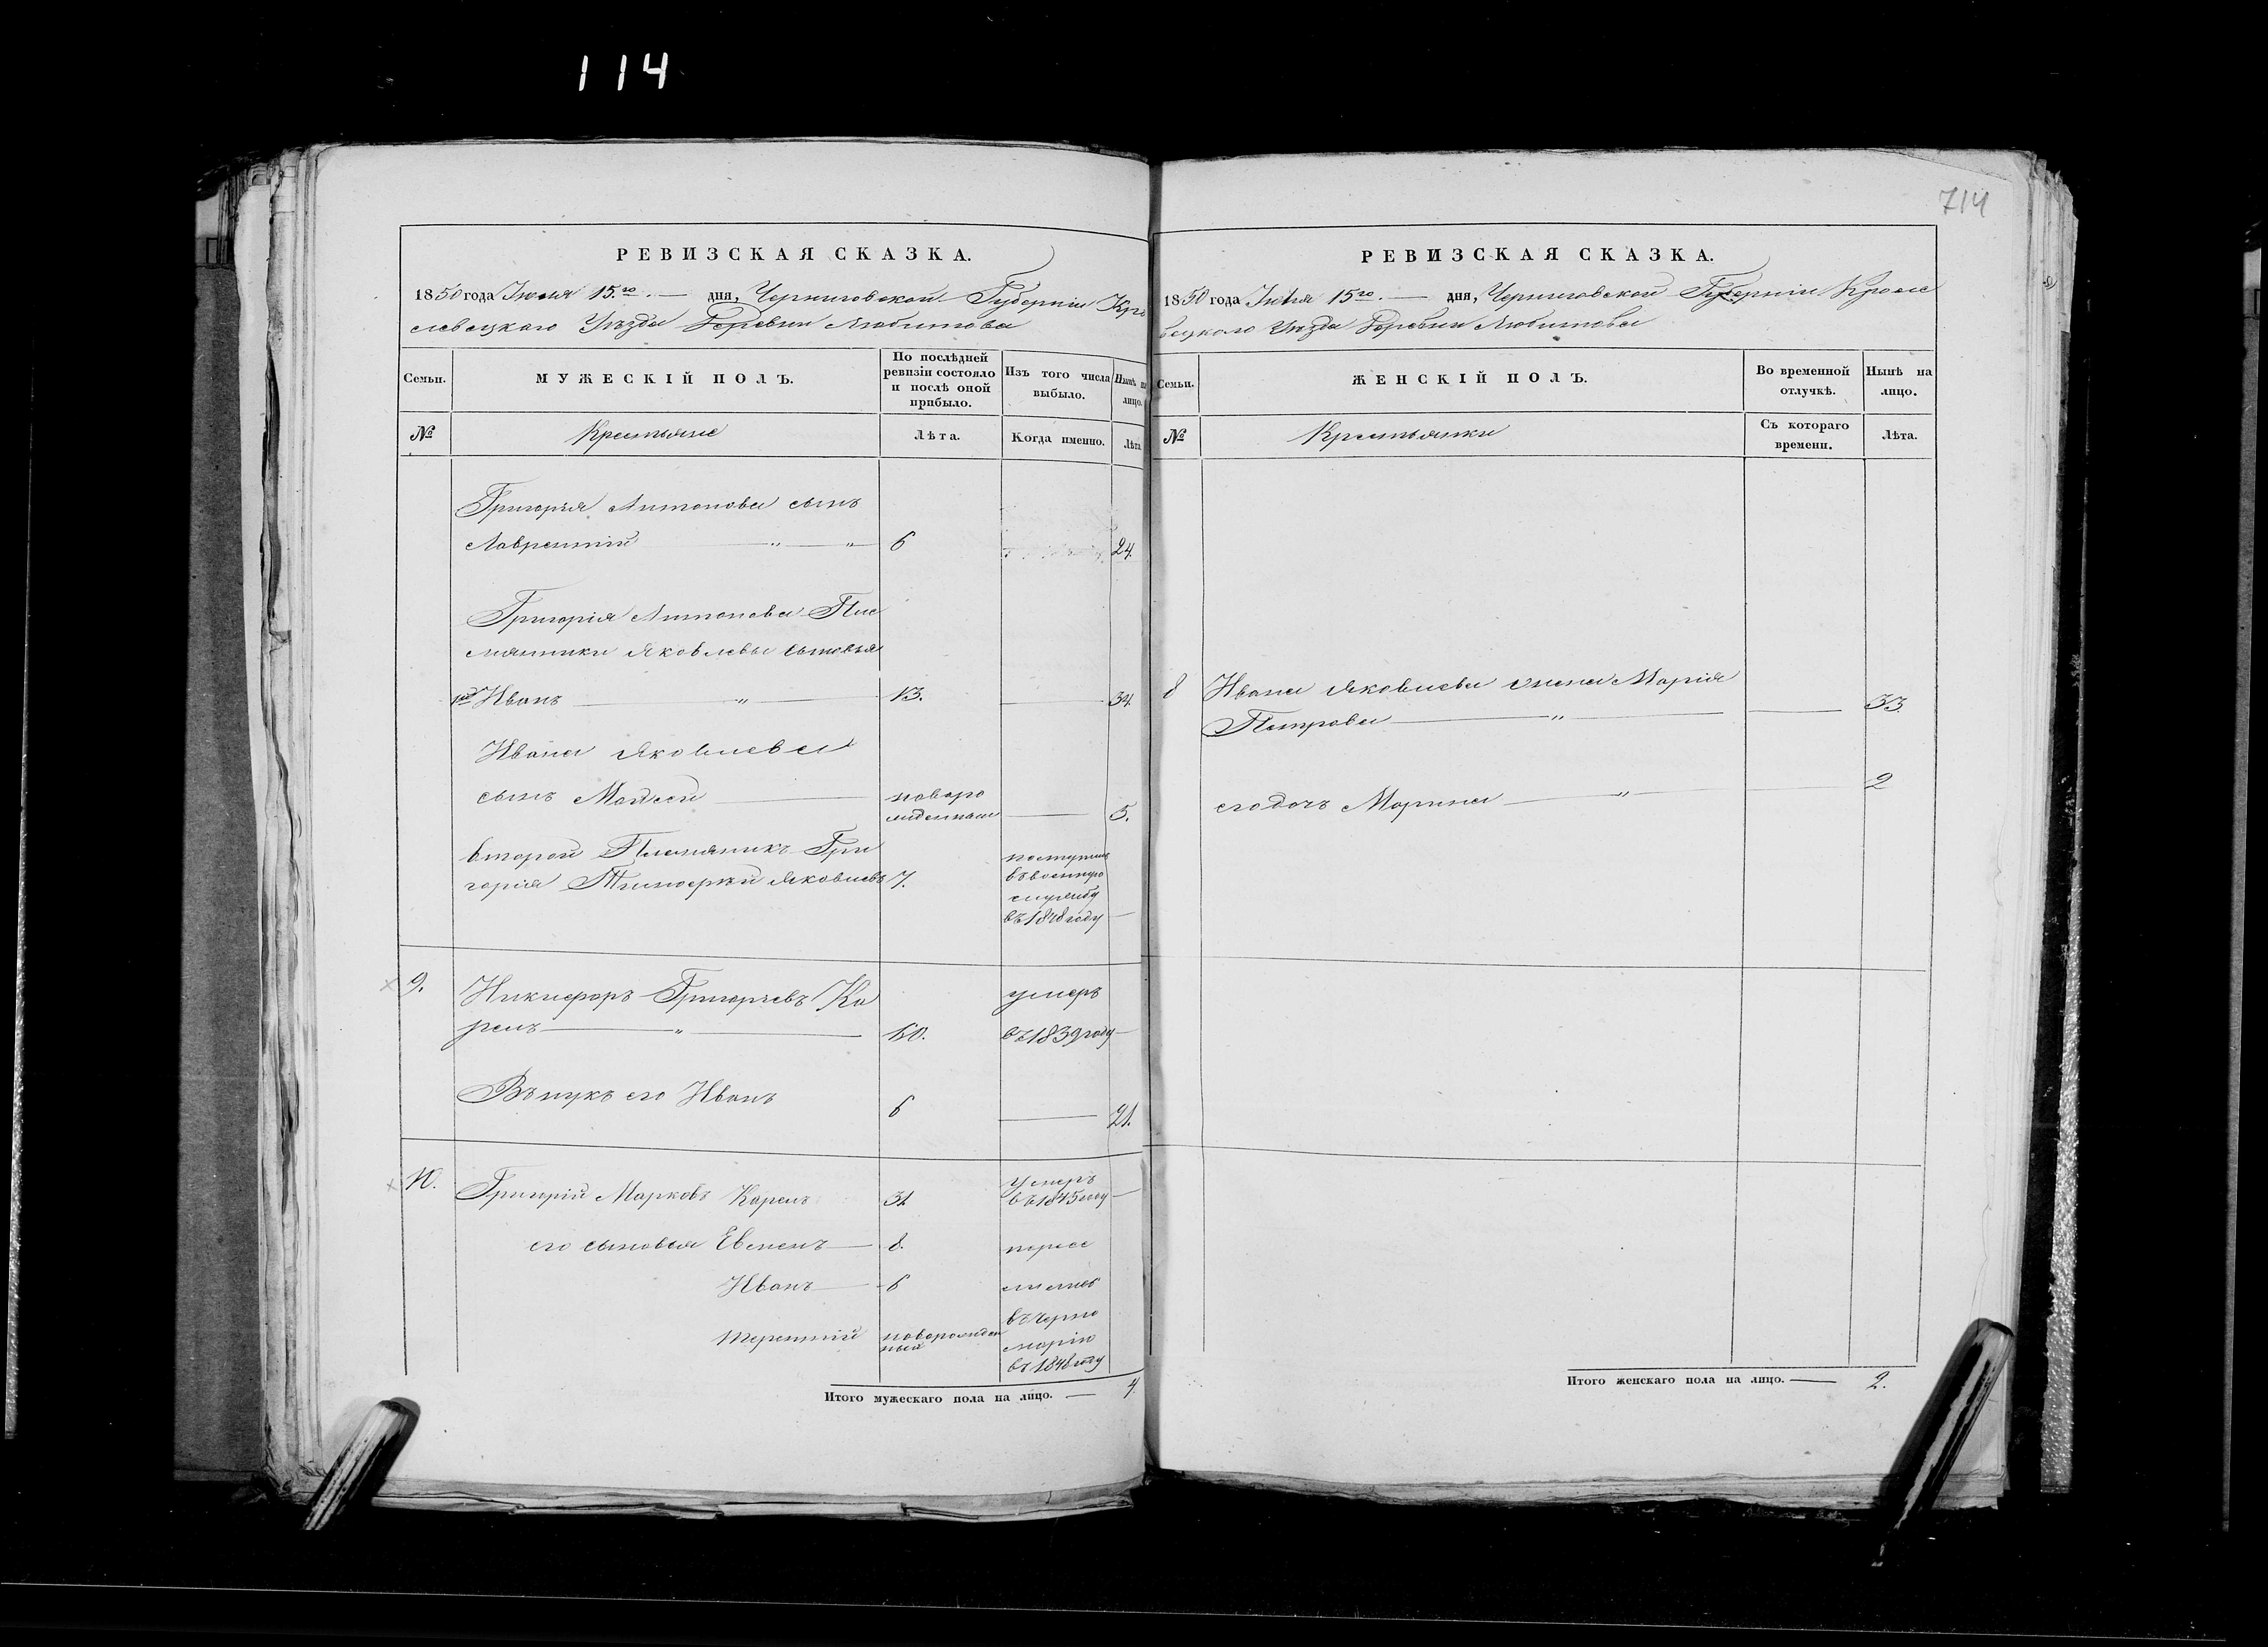 114
714
РЕВИЗСКАЯ СКАЗКА.
1850 года Июля 15го. — дня, Черниговской Губерніи Кро
левецкаго Уѣзда Деревни Любитова
Семьи.
МУЖЕСКІЙ ПОЛЪ.
По послѣдней ревизіи состояло и послѣ оной прибыло.
Изъ того числа выбыло.
Нынѣ на лицо.
№
Крестьяне
Лѣта.
Когда именно.
Лѣта
Григорія Антонова сынъ
Лаврентій — „ — „ — 6 24.
Григорія Антонова Пле
мянники Яковлевы сыновья
1й Иванъ — „ — 13. — 34.
Ивана Яковлева
сынъ Мойсей — новоро
жденный — 5.
второй Племяникъ Гри
горія Тимоѳей Яковлевъ 7.
поступилъ
въ военную
службу
въ 1848 году —
9. Никифоръ Григорьевъ Ка
репъ — „ — 60.
умеръ
въ 1839 году —
Внукъ его Иванъ 6 — 21.
10. Григорій Марковъ Карепъ 31
умеръ
въ 1845 году —
его сыновья Евменъ — 8.
Иванъ — 6
Терентій новорожден
ный
пересе
лились
въ Черно
морію
въ 1848 году
Итого мужескаго пола на лицо. — 4.
РЕВИЗСКАЯ СКАЗКА.
1850 года Июля 15го. — дня, Черниговской Губерніи Кроле
вецкаго Уѣзда Деревни Любитова
Семьи.
ЖЕНСКІЙ ПОЛЪ.
Во временной отлучкѣ.
Нынѣ на лицо.
№
Крестьянки
Съ котораго времени.
Лѣта.
8 Ивана Яковлева жена Марія
Петрова — „ — 33.
его дочь Марина — „ — 2
Итого женскаго пола на лицо. — 2.